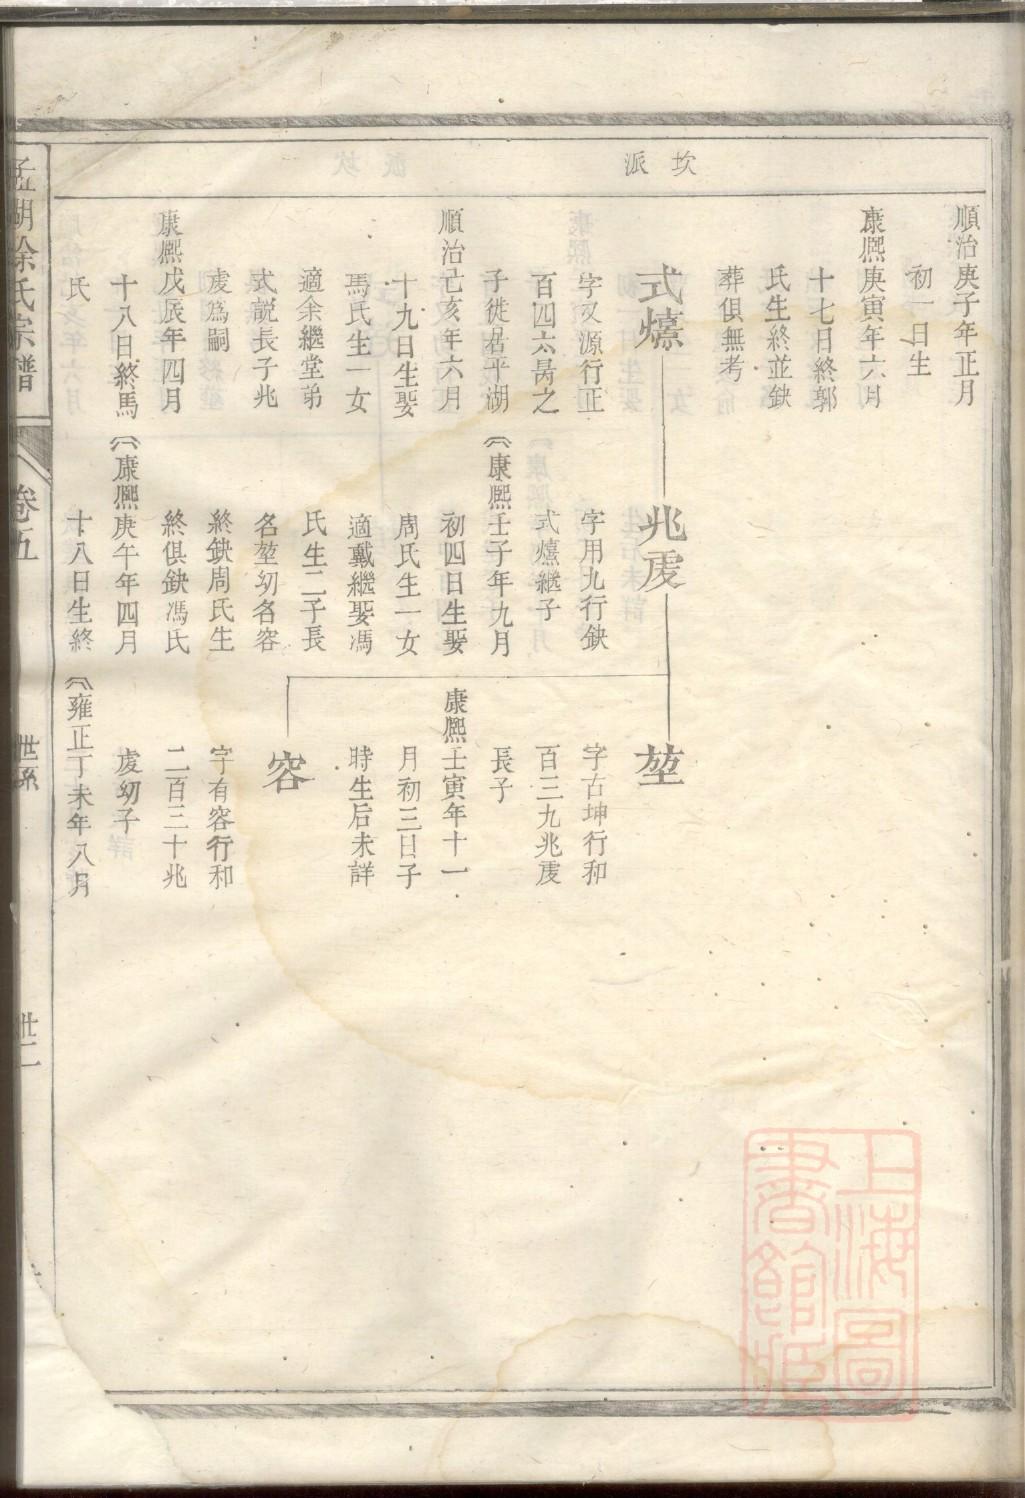 坎派
順治庚子年正月
初一日生
康熙庚寅年六月
十七日終郭
氏生終並缺
葬俱無考
式爔
字又源行正
百四六昺之
子徙居平湖
順治己亥年六月
十九日生娶
馬氏生一女
適余繼堂弟
式説長子兆
虔為嗣
康熙戊辰年四月
十八日終馬
氏
康熙庚午年四月
十八日生終
雍正丁未年八月
兆虔
字用九行缺
式爔繼子
康熙壬子年九月
初四日生娶
周氏生一女
適戴繼娶馮
氏生二子長
名堃幼名容
終缺周氏生
終俱缺馮氏
堃
字古坤行和
百三九兆虔
長子
康熙壬寅年十一
月初三日子
時生后未詳
容
字有容行和
二百三十兆
虔幼子
孟湖徐氏宗譜
卷五
世系
卅二
上海圖
書館